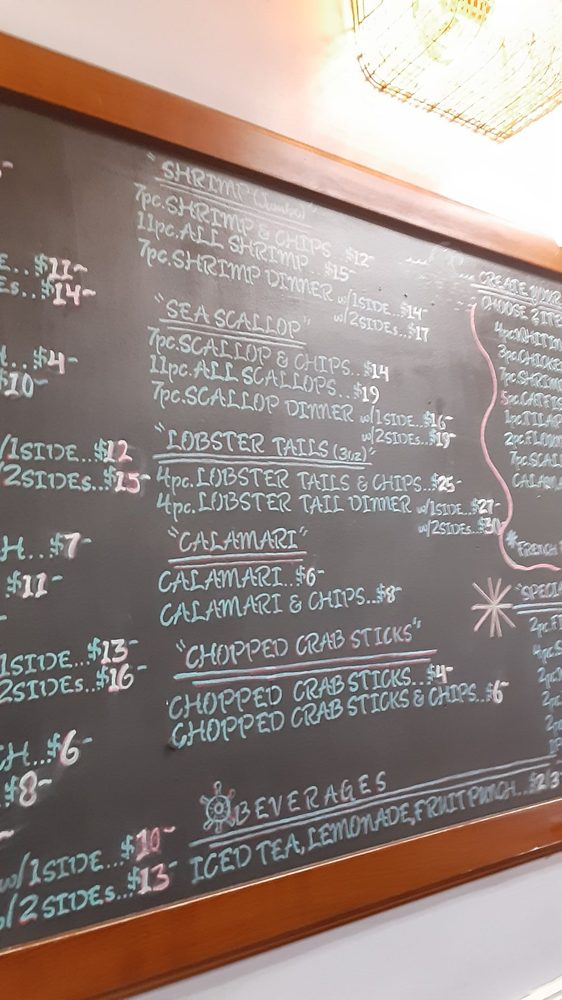 E...$11-
ES...$14-
H...$4-
$10-
/1SIDE...$12
/2SIDES...$15-
H...$7-
$11-
1SIDE...$13-
2SIDES...$16-
CH...$6-
$8-
w/1SIDE...$10-
/2SIDES...$13-
"SHRIMP (Jumbo)"
7pc.SHRIMP & CHIPS...$12-
11pc.ALL SHRIMP...$15-
7pc.SHRIMP DINNER w/1SIDE..$14-
w/2SIDES..$17
"SEA SCALLOP"
7pc.SCALLOP & CHIPS...$14
11pc.ALL SCALLOPS...$19
7pc.SCALLOP DINNER w/1SIDE...$16-
w/2SIDES...$19-
"LOBSTER TAILS (3oz)"
4pc.LOBSTER TAILS & CHIPS...$25-
4pc.LOBSTER TAIL DINNER w/1SIDE...$27-
w/2SIDES...$30
"CALAMARI"
CALAMARI...$6-
CALAMARI & CHIPS...$8-
"CHOPPED CRAB STICKS"
CHOPPED CRAB STICKS...$4-
CHOPPED CRAB STICKS & CHIPS...$6-
BEVERAGES
ICED TEA, LEMONADE, FRUIT PUNCH...$2/3
CREATE YOUR
CHOOSE 2 ITE
4pc.WHITIN
3pc.CHICKE
7pc.SHRIM
5pc.CATFIS
1pc.TILAP
2pc.FLOUN
7pc.SCAL
CALAMA
*FRENCH
"SPECIA
2pc.F
4pc.S
2pc.
2pc.
2pc.